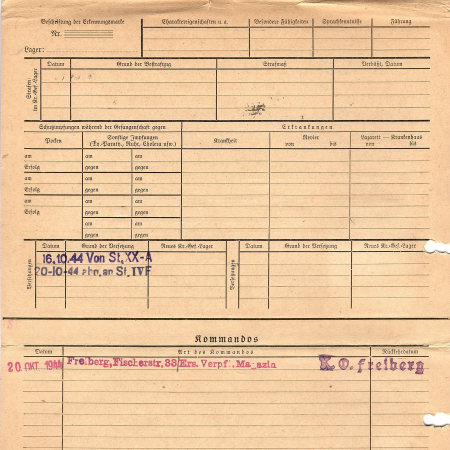 Beschriftung der Erkennungsmarke
Nr.
Lager:
Charaktereigenschaften u. a.
Besondere Fähigkeiten
Sprachkenntnisse
Führung
Strafen im Kr.-Gef.-Lager
Datum
Grund der Bestrafung
Strafmaß
Verbüßt, Datum
Schutzimpfungen während der Gefangenschaft gegen
Erkrankungen
Pocken
Sonstige Impfungen
(Ty.-Paraty., Ruhr, Cholera usw.)
Krankheit
Revier
von bis
Lazarett — Krankenhaus
von bis
am am am
Erfolg gegen gegen
am am am
Erfolg gegen gegen
am am am
Erfolg gegen gegen
am am
gegen gegen
am am
gegen gegen
Versetzungen
Datum Grund der Versetzung Neues Kr.-Gef.-Lager
Versetzungen
Datum Grund der Versetzung Neues Kr.-Gef.-Lager
16.10.44 Von St. XX-A
20-10-44 an St. IVF
Kommandos
Datum Art des Kommandos Rückkehrdatum
20. OKT. 1944 Freiberg, Fischerstr. 33/Ers. Verpf. Magazin K. O. freiberg